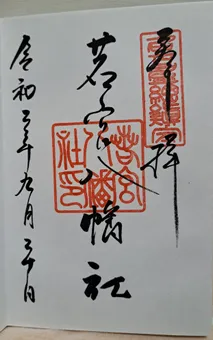 奉拝
若宮八幡社
若宮八幡社印
令和三年九月三十日